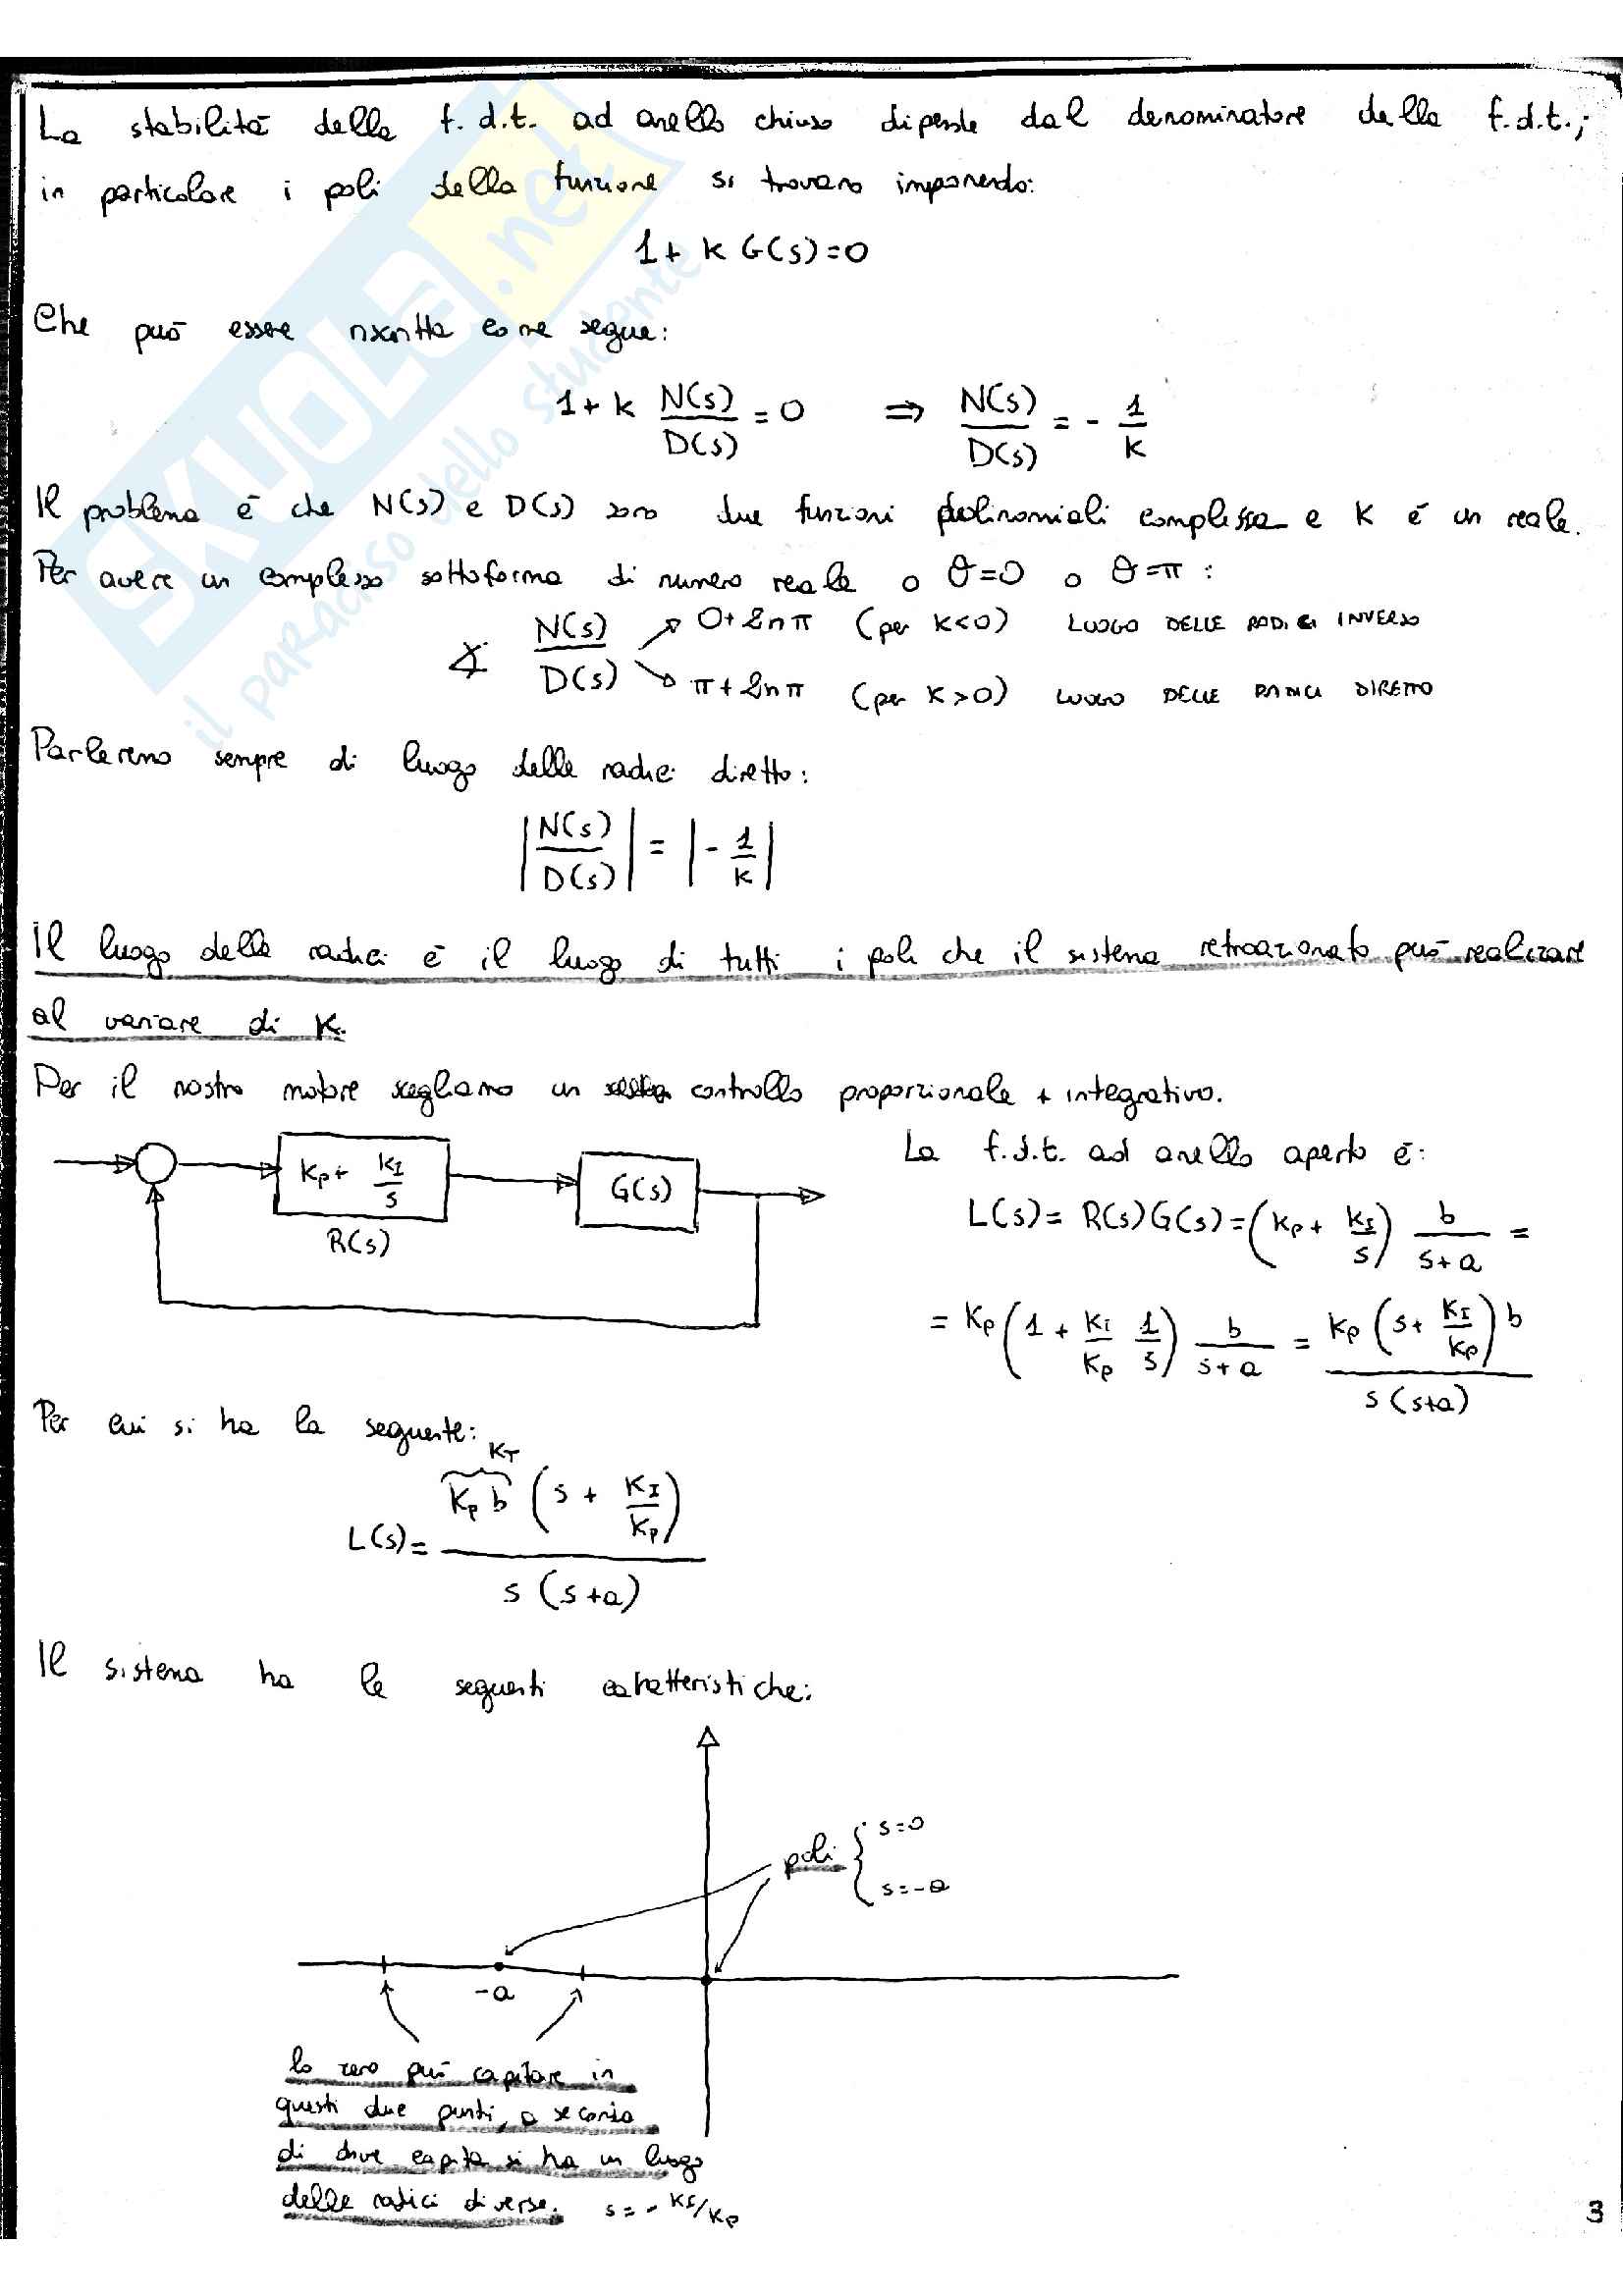 La stabilità della f.d.t. ad anello chiuso dipende dal denominatore della f.d.t.;
in particolare i poli della funzione si trovano imponendo:
1 + K G(s) = 0
Che può essere riscritta come segue:
1 + K N(s)/D(s) = 0 ⇒ N(s)/D(s) = - 1/K
Il problema è che N(s) e D(s) sono due funzioni polinomiali complesse e K è un reale.
Per avere un complesso sottoforma di numero reale o θ=0 o θ=π :
∡ N(s)/D(s) ↗ 0+2nπ (per K<0) LUOGO DELLE RADICI INVERSO
↘ π+2nπ (per K>0) LUOGO DELLE RADICI DIRETTO
Parleremo sempre di luogo delle radici diretto:
|N(s)/D(s)| = |- 1/K|
Il luogo delle radici è il luogo di tutti i poli che il sistema retroazionato può realizzare
al variare di K.
Per il nostro motore scegliamo un controllo proporzionale + integrativo.
Kp + KI/s
R(s)
G(s)
La f.d.t. ad anello aperto è:
L(s) = R(s)G(s) = (Kp + KI/s) b/(s+a) =
= Kp (1 + KI/Kp 1/s) b/(s+a) = Kp (s + KI/Kp) b / s(s+a)
Per cui si ha la seguente:
KT
L(s) = Kp b (s + KI/Kp) / s(s+a)
Il sistema ha le seguenti caratteristiche:
poli { s=0
s=-a
-a
lo zero può capitare in
questi due punti, a seconda
di dove capita si ha un luogo
delle radici diverse. s = - KI/Kp
3
SKUOLA.net
il paradiso dello studente